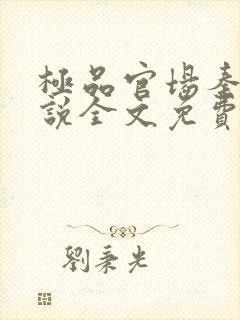 極品官場秦
說全文免費
劉秉光